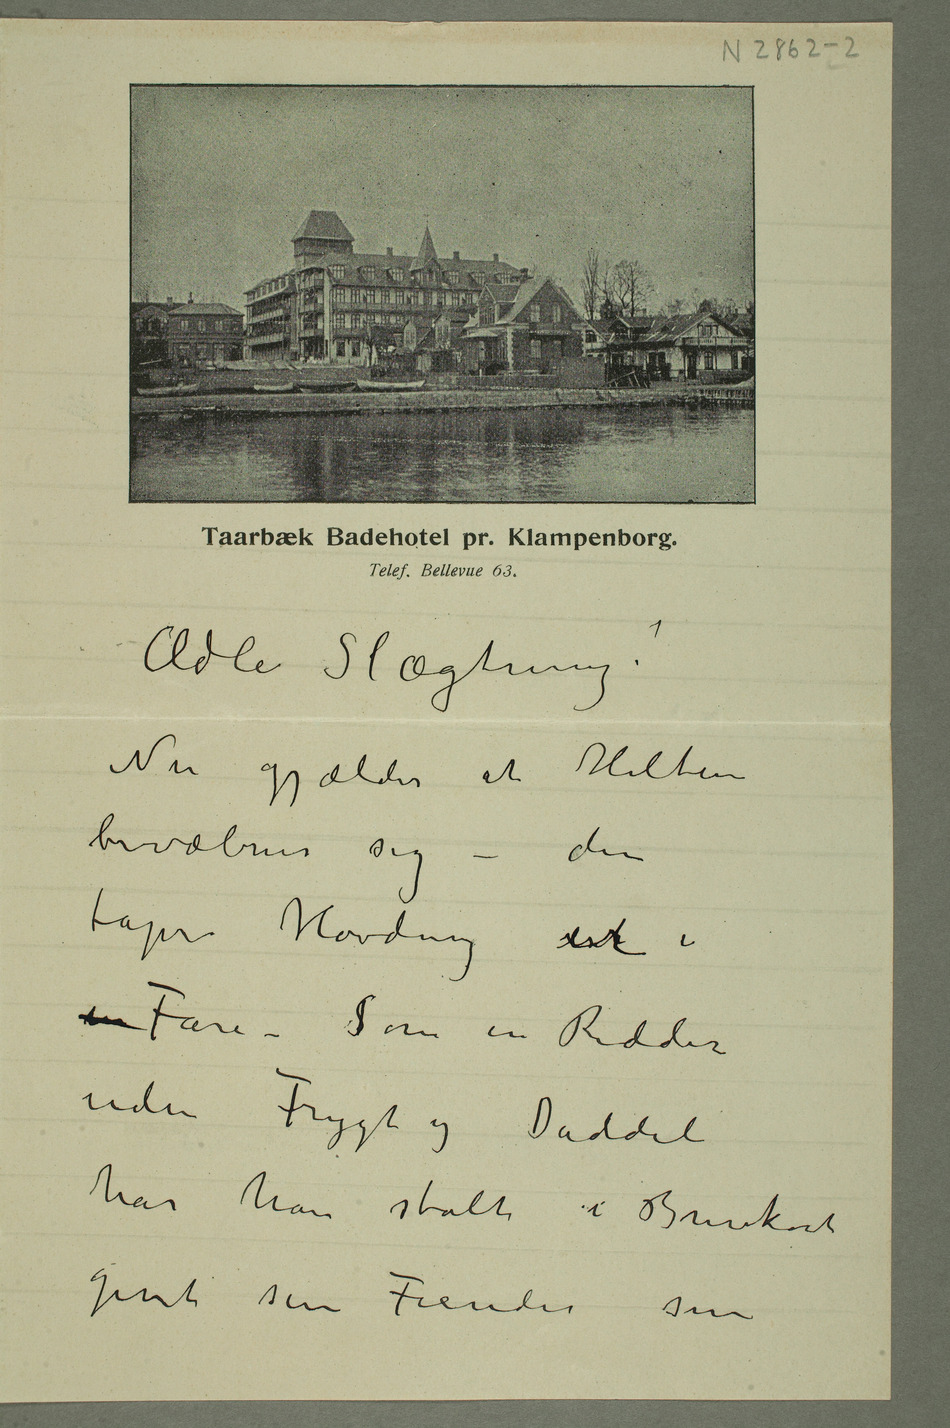 N 2862-2
Taarbæk Badehotel pr. Klampenborg.
Telef. Bellevue 63.
Ædle Slægtning!
Nu gjælder at Helten
bevæbner sig – den
tapre Høvding er i
Fare – Som en Ridder
uden Frygt og Daddel
har han stolt i Brevkort
givet sin Fiender sin